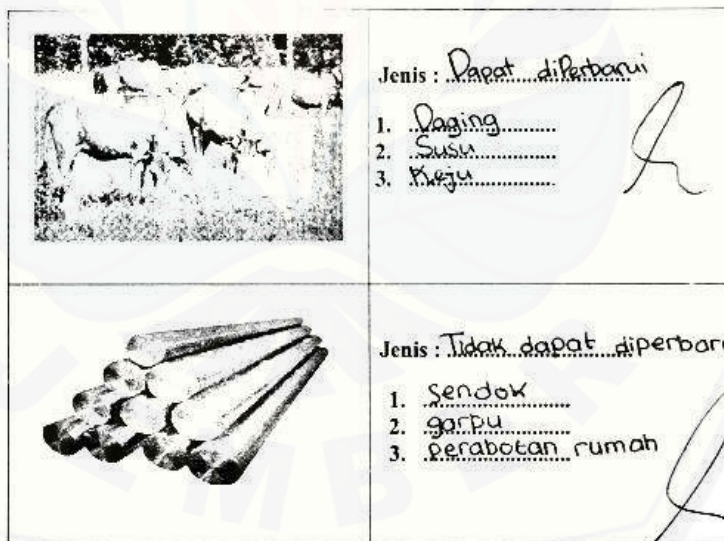 Jenis : Dapat diperbarui
1. Daging
2. Susu
3. Keju
Jenis : Tidak dapat diperbaru
1. Sendok
2. garpu
3. Perabotan rumah
JEMBER